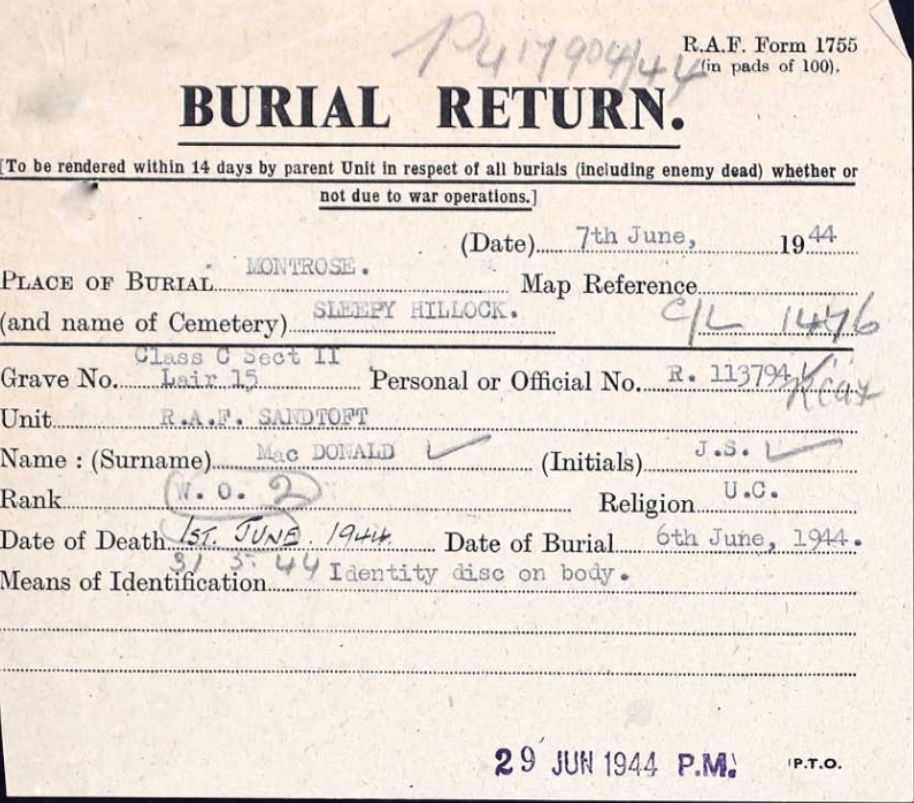 P417904/44
R.A.F. Form 1755
(in pads of 100).
BURIAL RETURN.
[To be rendered within 14 days by parent Unit in respect of all burials (including enemy dead) whether or
not due to war operations.]
(Date) 7th June, 1944
PLACE OF BURIAL MONTROSE. Map Reference
(and name of Cemetery) SLEEPY HILLOCK. C/L 1476
Class C Sect II
Grave No. Lair 15 Personal or Official No. R. 113794 ✓
RCAF
Unit R.A.F. SANDTOFT
Name : (Surname) Mac DONALD ✓ (Initials) J.S. ✓
Rank W. O. 2 Religion U.C.
Date of Death 1ST. JUNE. 1944. Date of Burial 6th June, 1944.
31 5. 44
Means of Identification Identity disc on body.
29 JUN 1944 P.M. P.T.O.